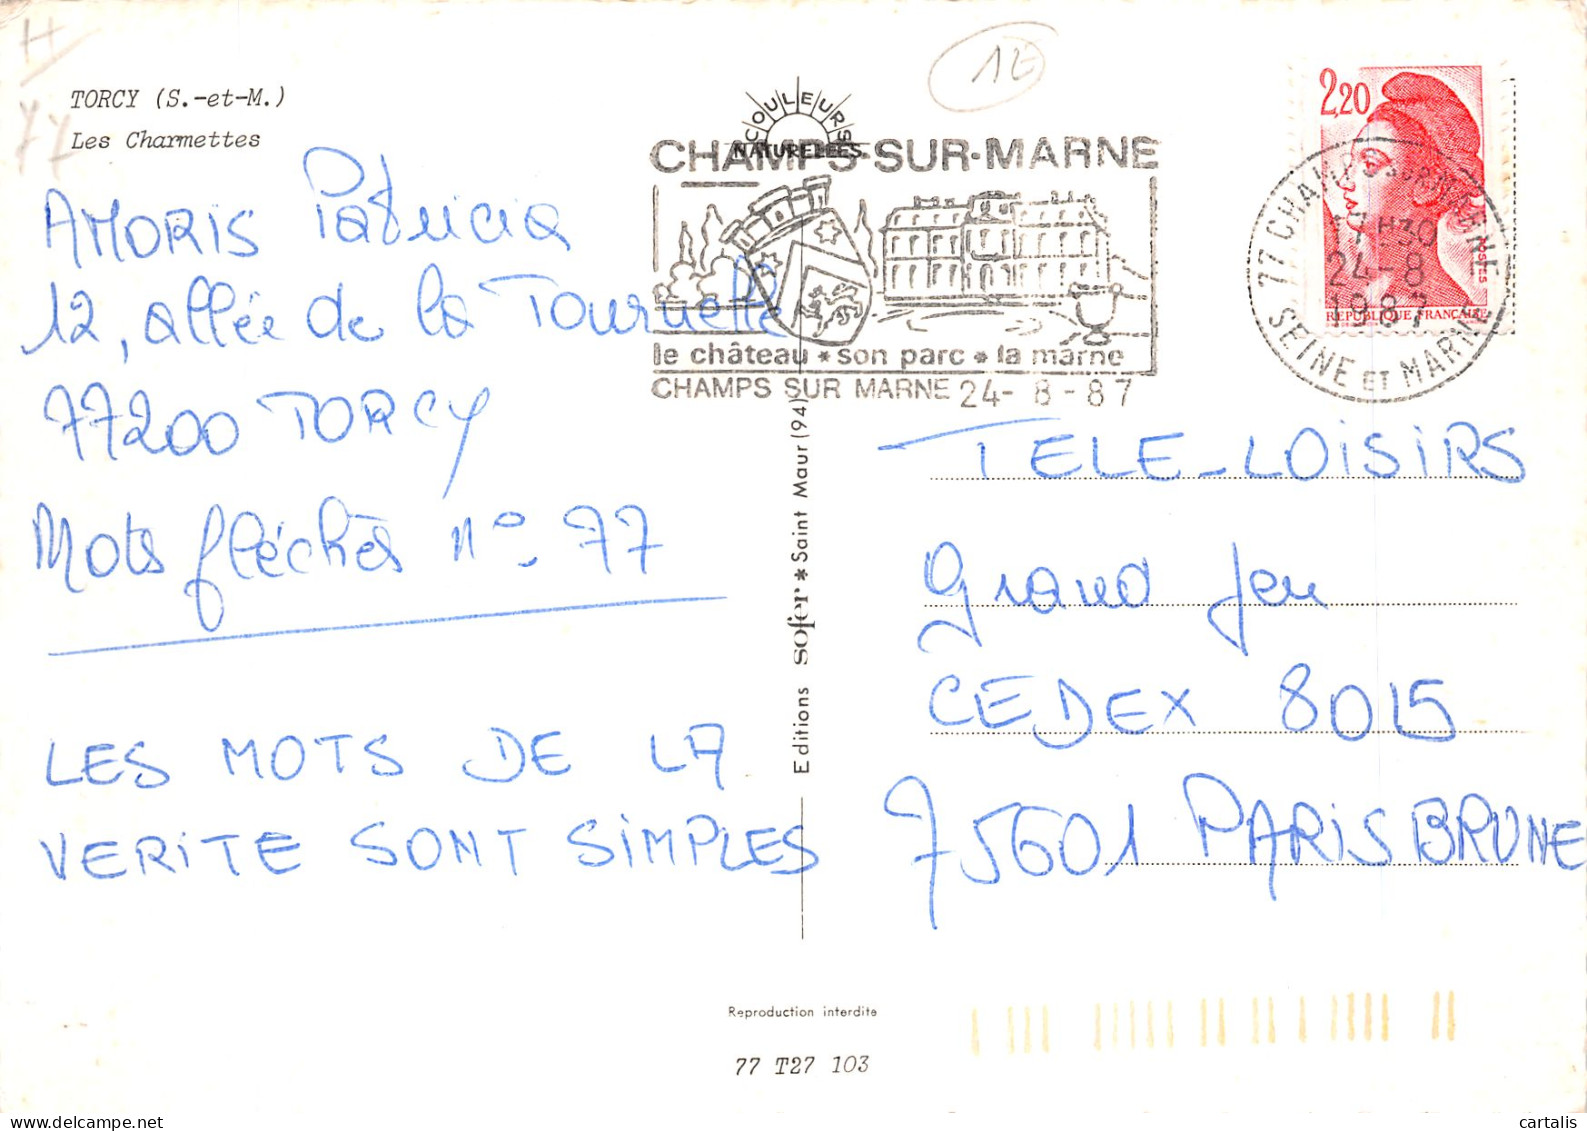 H
77
1E
TORCY (S.-et-M.)
Les Charmettes
COULEURS
NATURELLES
CHAMPS-SUR-MARNE
le château * son parc * la marne
CHAMPS SUR MARNE 24-8-87
2,20
POSTES
REPUBLIQUE FRANÇAISE
77 CHAMPS SUR MARNE
17H30
24-8
1987
SEINE ET MARNE
AMORIS Patricia
12, allée de la Tournelle
77200 TORCY
Mots fléchés n° 77
LES MOTS DE LA
VERITE SONT SIMPLES
Editions sofer * Saint Maur (94)
TELE-LOISIRS
Grand Jeu
CEDEX 8015
75601 PARIS BRUNE
Reproduction interdite
77 T27 103
cartalis